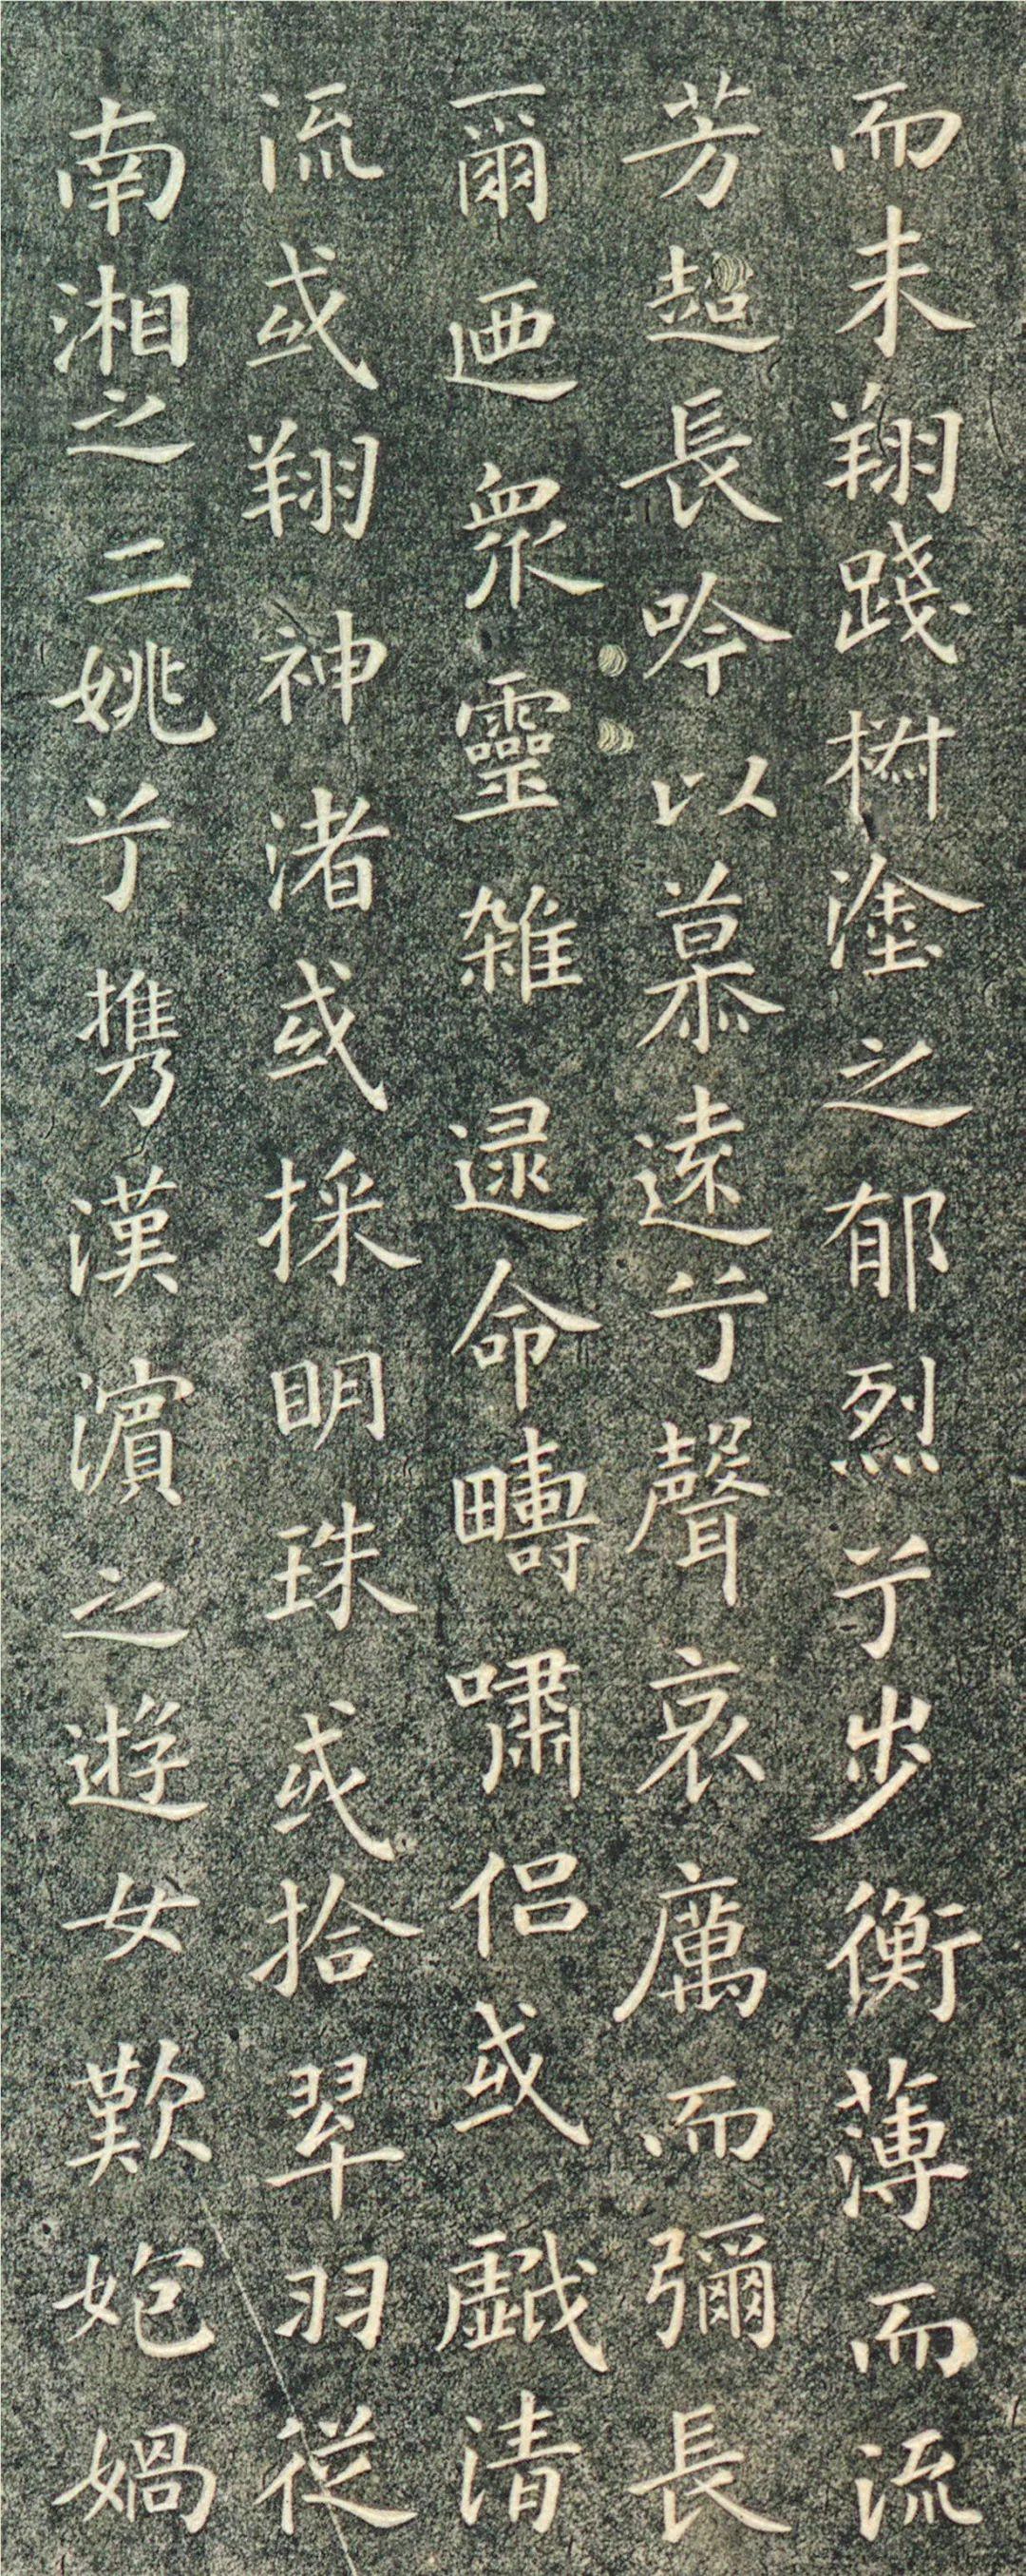 而未翔踐椒塗之郁烈兮步衡薄而流
芳超長吟以慕遠兮聲哀厲而彌長
爾迺衆靈雜逯命疇嘯侶或戱清
流或翔神渚或採明珠或拾翠羽從
南湘之二姚兮携漢濱之遊女歎媧